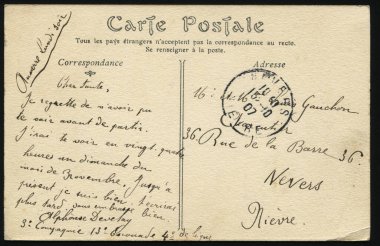 Carte Postale
Tous les pays étrangers n'acceptent pas la correspondance au recto.
Se renseigner à la poste.
Correspondance
Adresse
Chère tante,
Je regrette de n'avoir pu
te voir avant de partir.
J'irai te voir en vingt quatre
heures un dimanche du
mois de Novembre. Jusqu'à
présent je suis bien, t'écrirai
plus tard. vous embrasse bien
Alphonse
3e Compagnie 13e Escouade 4e de ligne
Gauchon
rentier
36 Rue de la Barre 36
Nevers
Nièvre